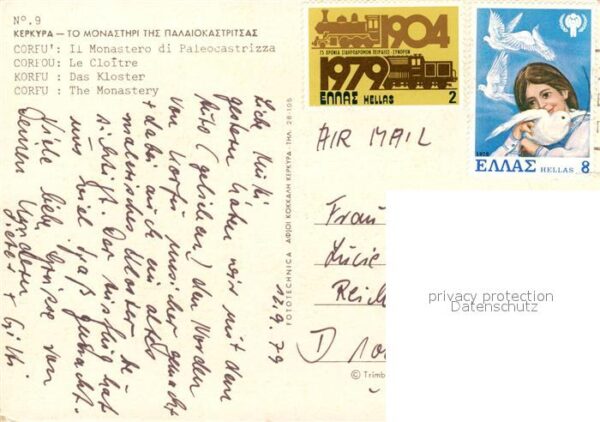 Nº. 9
ΚΕΡΚΥΡΑ — ΤΟ ΜΟΝΑΣΤΗΡΙ ΤΗΣ ΠΑΛΑΙΟΚΑΣΤΡΙΤΣΑΣ
CORFU' : Il Monastero di Paleocastrizza
CORFOU: Le Cloître
KORFU : Das Kloster
CORFU : The Monastery
1904
75 ΧΡΟΝΙΑ ΣΙΔΗΡΟΔΡΟΜΟΥ ΠΕΙΡΑΙΩΣ ΣΥΝΟΡΩΝ
1979
ΕΛΛΑΣ HELLAS 2
1979
ΕΛΛΑΣ HELLAS 8
AIR MAIL
12.9.79
Liebe Mutti
gestern haben wir mit dem
Auto (geliehen) den Norden
von Korfu unsicher gemacht
+ dabei auch ein altes
malerisches Kloster be-
sichtigt. Der Ausflug hat
uns viel Spaß gemacht.
Viele liebe Grüsse von
Deinen Kindern
+
FOTOTECHNICA ΑΦΟΙ ΚΟΚΚΑΛΗ ΚΕΡΚΥΡΑ - ΤΗΛ. 28-105
Frau
Lucie
Reich
D
© Trimb
privacy protection
Datenschutz